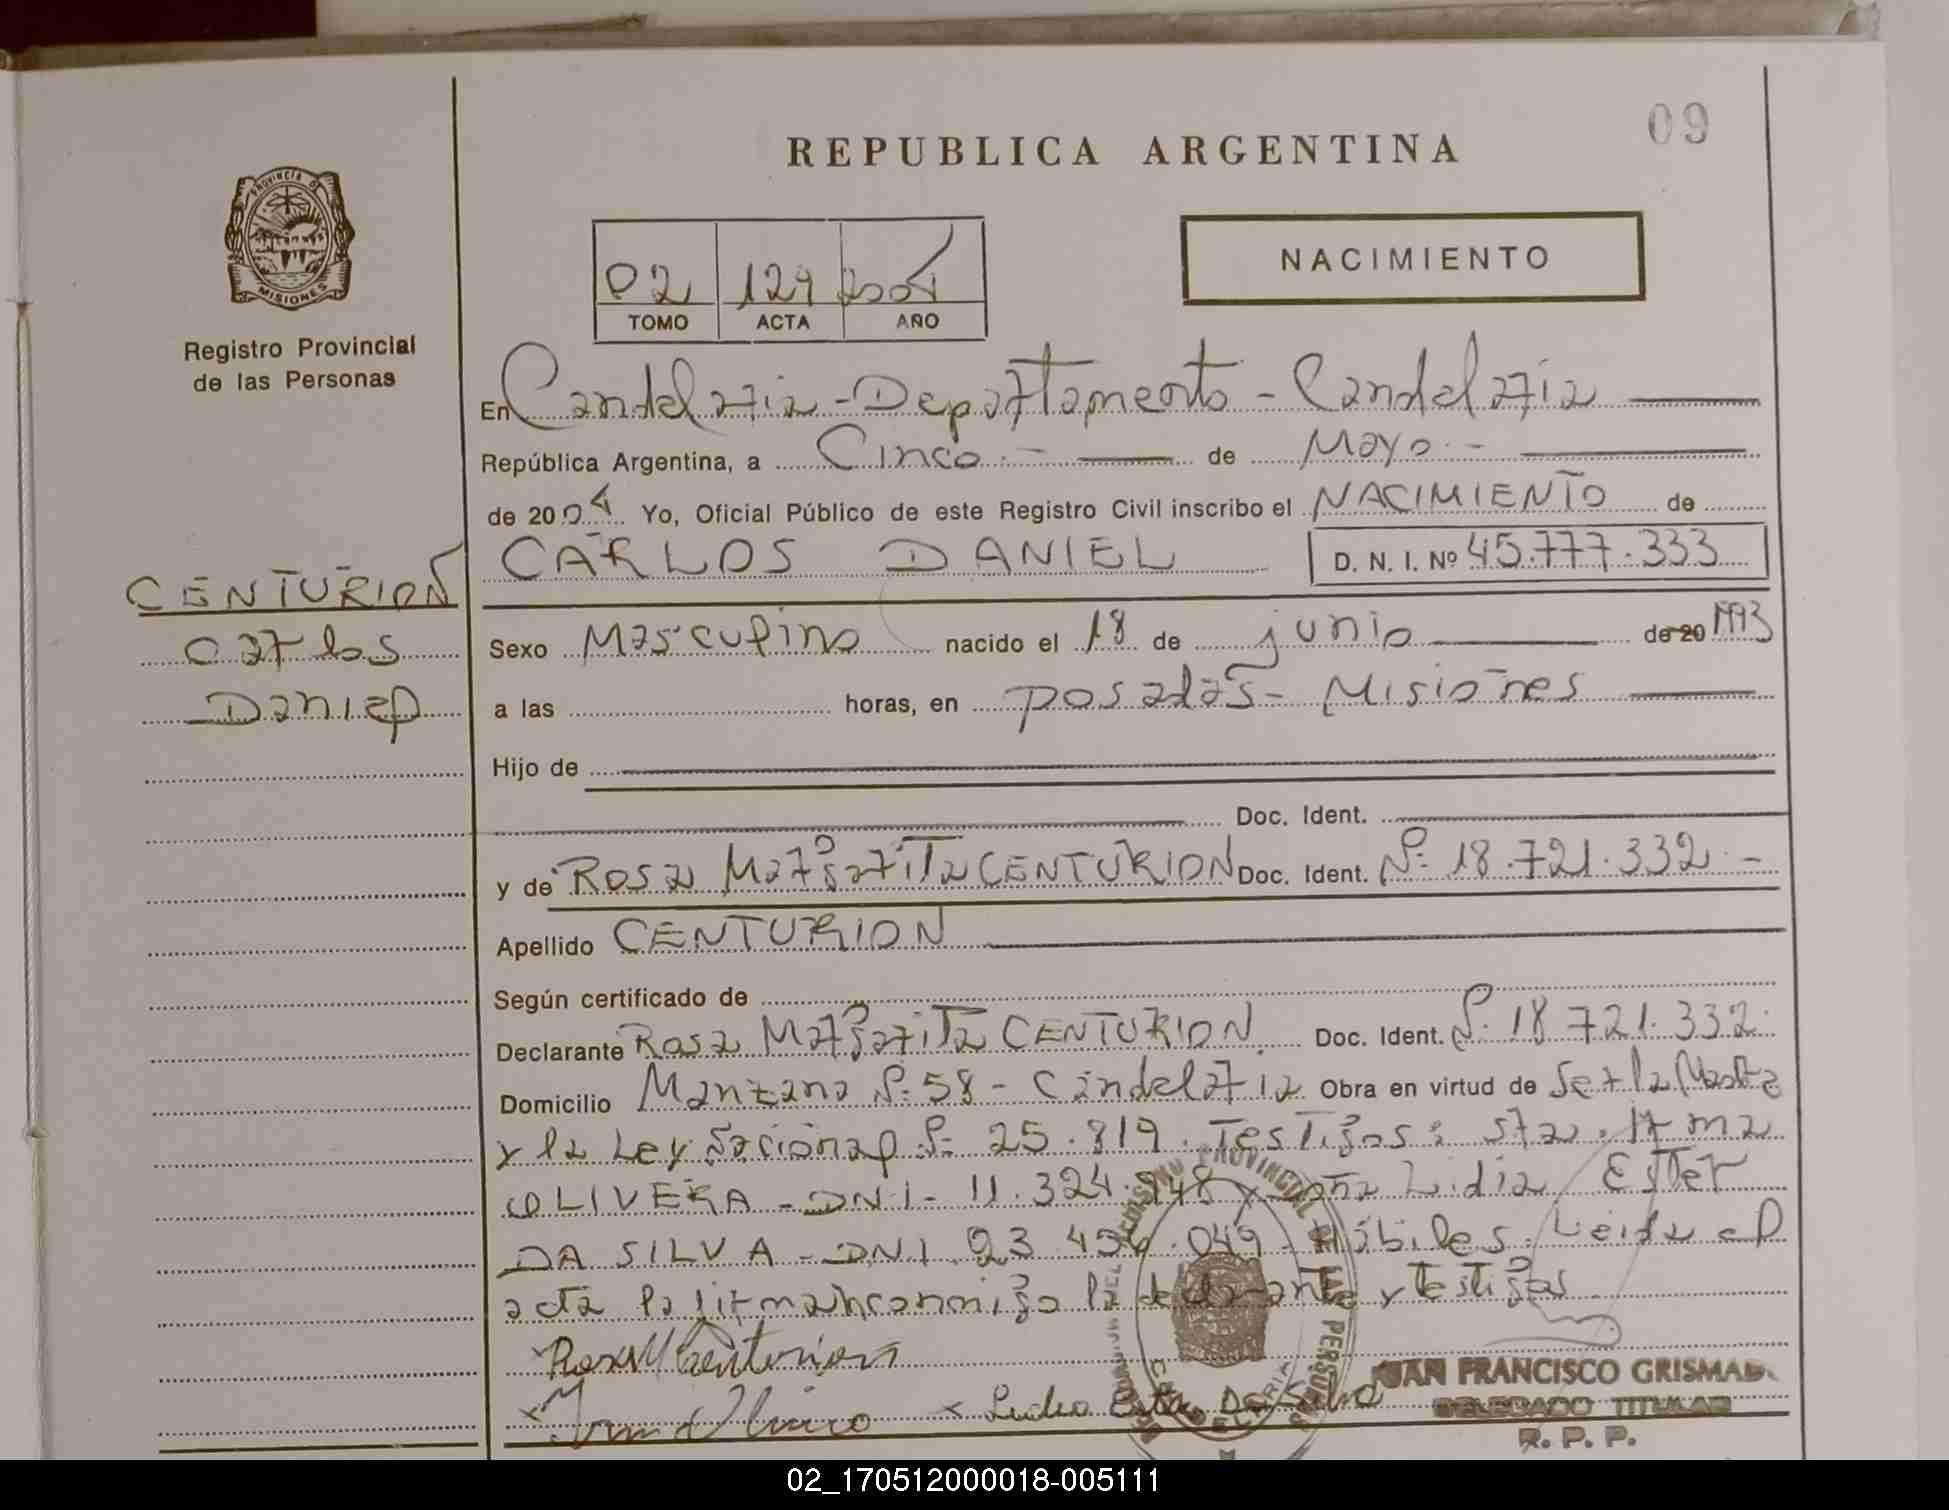 09
REPUBLICA ARGENTINA
PROVINCIA DE
MISIONES
Registro Provincial
de las Personas
NACIMIENTO
02 129 2004
TOMO ACTA AÑO
En Candelaria - Departamento - Candelaria
República Argentina, a Cinco.- de Mayo.-
de 2004 Yo, Oficial Público de este Registro Civil inscribo el NACIMIENTO de
CARLOS DANIEL D. N. I. Nº 45.777.333
CENTURION
Carlos
Daniel
Sexo Masculino nacido el 18 de junio de 20 1993
a las horas, en Posadas - Misiones
Hijo de
Doc. Ident.
y de Rosa Margarita CENTURION Doc. Ident. Nº 18.721.332.-
Apellido CENTURION
Según certificado de
Declarante Rosa Margarita CENTURION. Doc. Ident. Nº 18.721.332.
Domicilio Manzana Nº 58 - Candelaria Obra en virtud de Ser la Madre
y la Ley Nacional Nº 25.819. Testigos: Sra. Irma
OLIVERA - DNI - 11.324.948 y Lidia Ester
DA SILVA - DNI. 93 049 - Hábiles. Leida el
acta la firman conmigo la declarante y Testigos
Rosa M Centurion
Irma Olivera x Lidia Ester Da Silva
JUAN FRANCISCO GRISMAD
DELEGADO TITULAR
R. P. P.
02_170512000018-005111